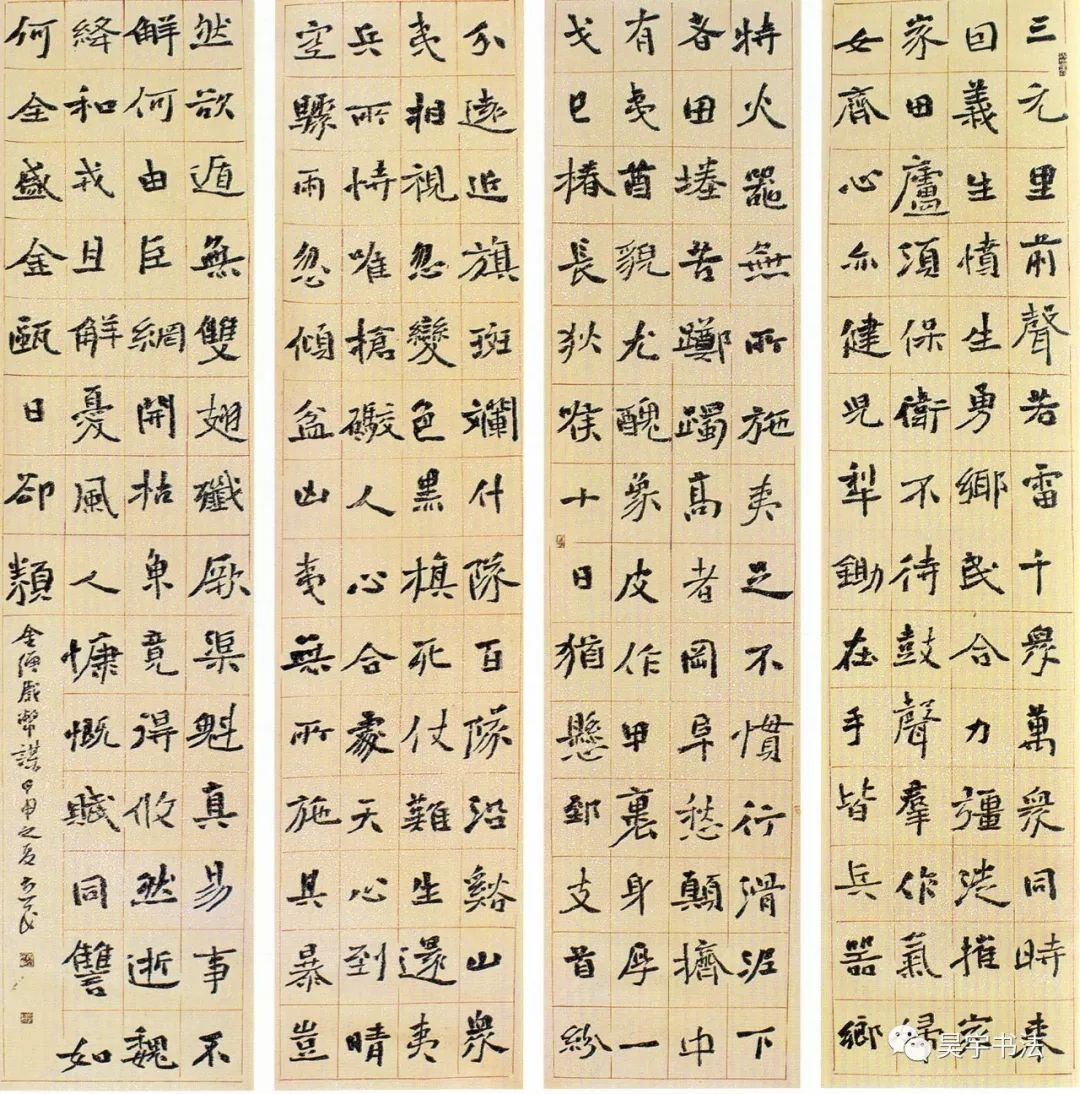 三元里前聲若雷千眾萬眾同時來
因義生憤生勇鄉民合力彊徒摧家
家田廬須保衛不待鼓聲羣作氣婦
女齊心亦健兒犁鋤在手皆兵器鄉
特火器無所施夷足不慣行滑泥下
者田塍苦躑躅高者岡阜愁顛擠中
有夷酋貌尤醜象皮作甲裹身厚一
戈已摏長狄喉十日猶懸郅支首紛
分遠近旗斑斕什隊百隊沿谿山眾
夷相視忽變色黑旗死仗難生還夷
兵所恃唯槍礮人心合處天心到晴
空驟雨忽傾盆凶夷無所施其暴豈
然欲遁無雙翅殲厥渠魁真易事不
解何由巨網開枯魚竟得攸然逝魏
絳和戎且解憂風人慷慨賦同讎如
何全盛金甌日卻類
金繒歲幣謀甲申之夏
昊宇书法